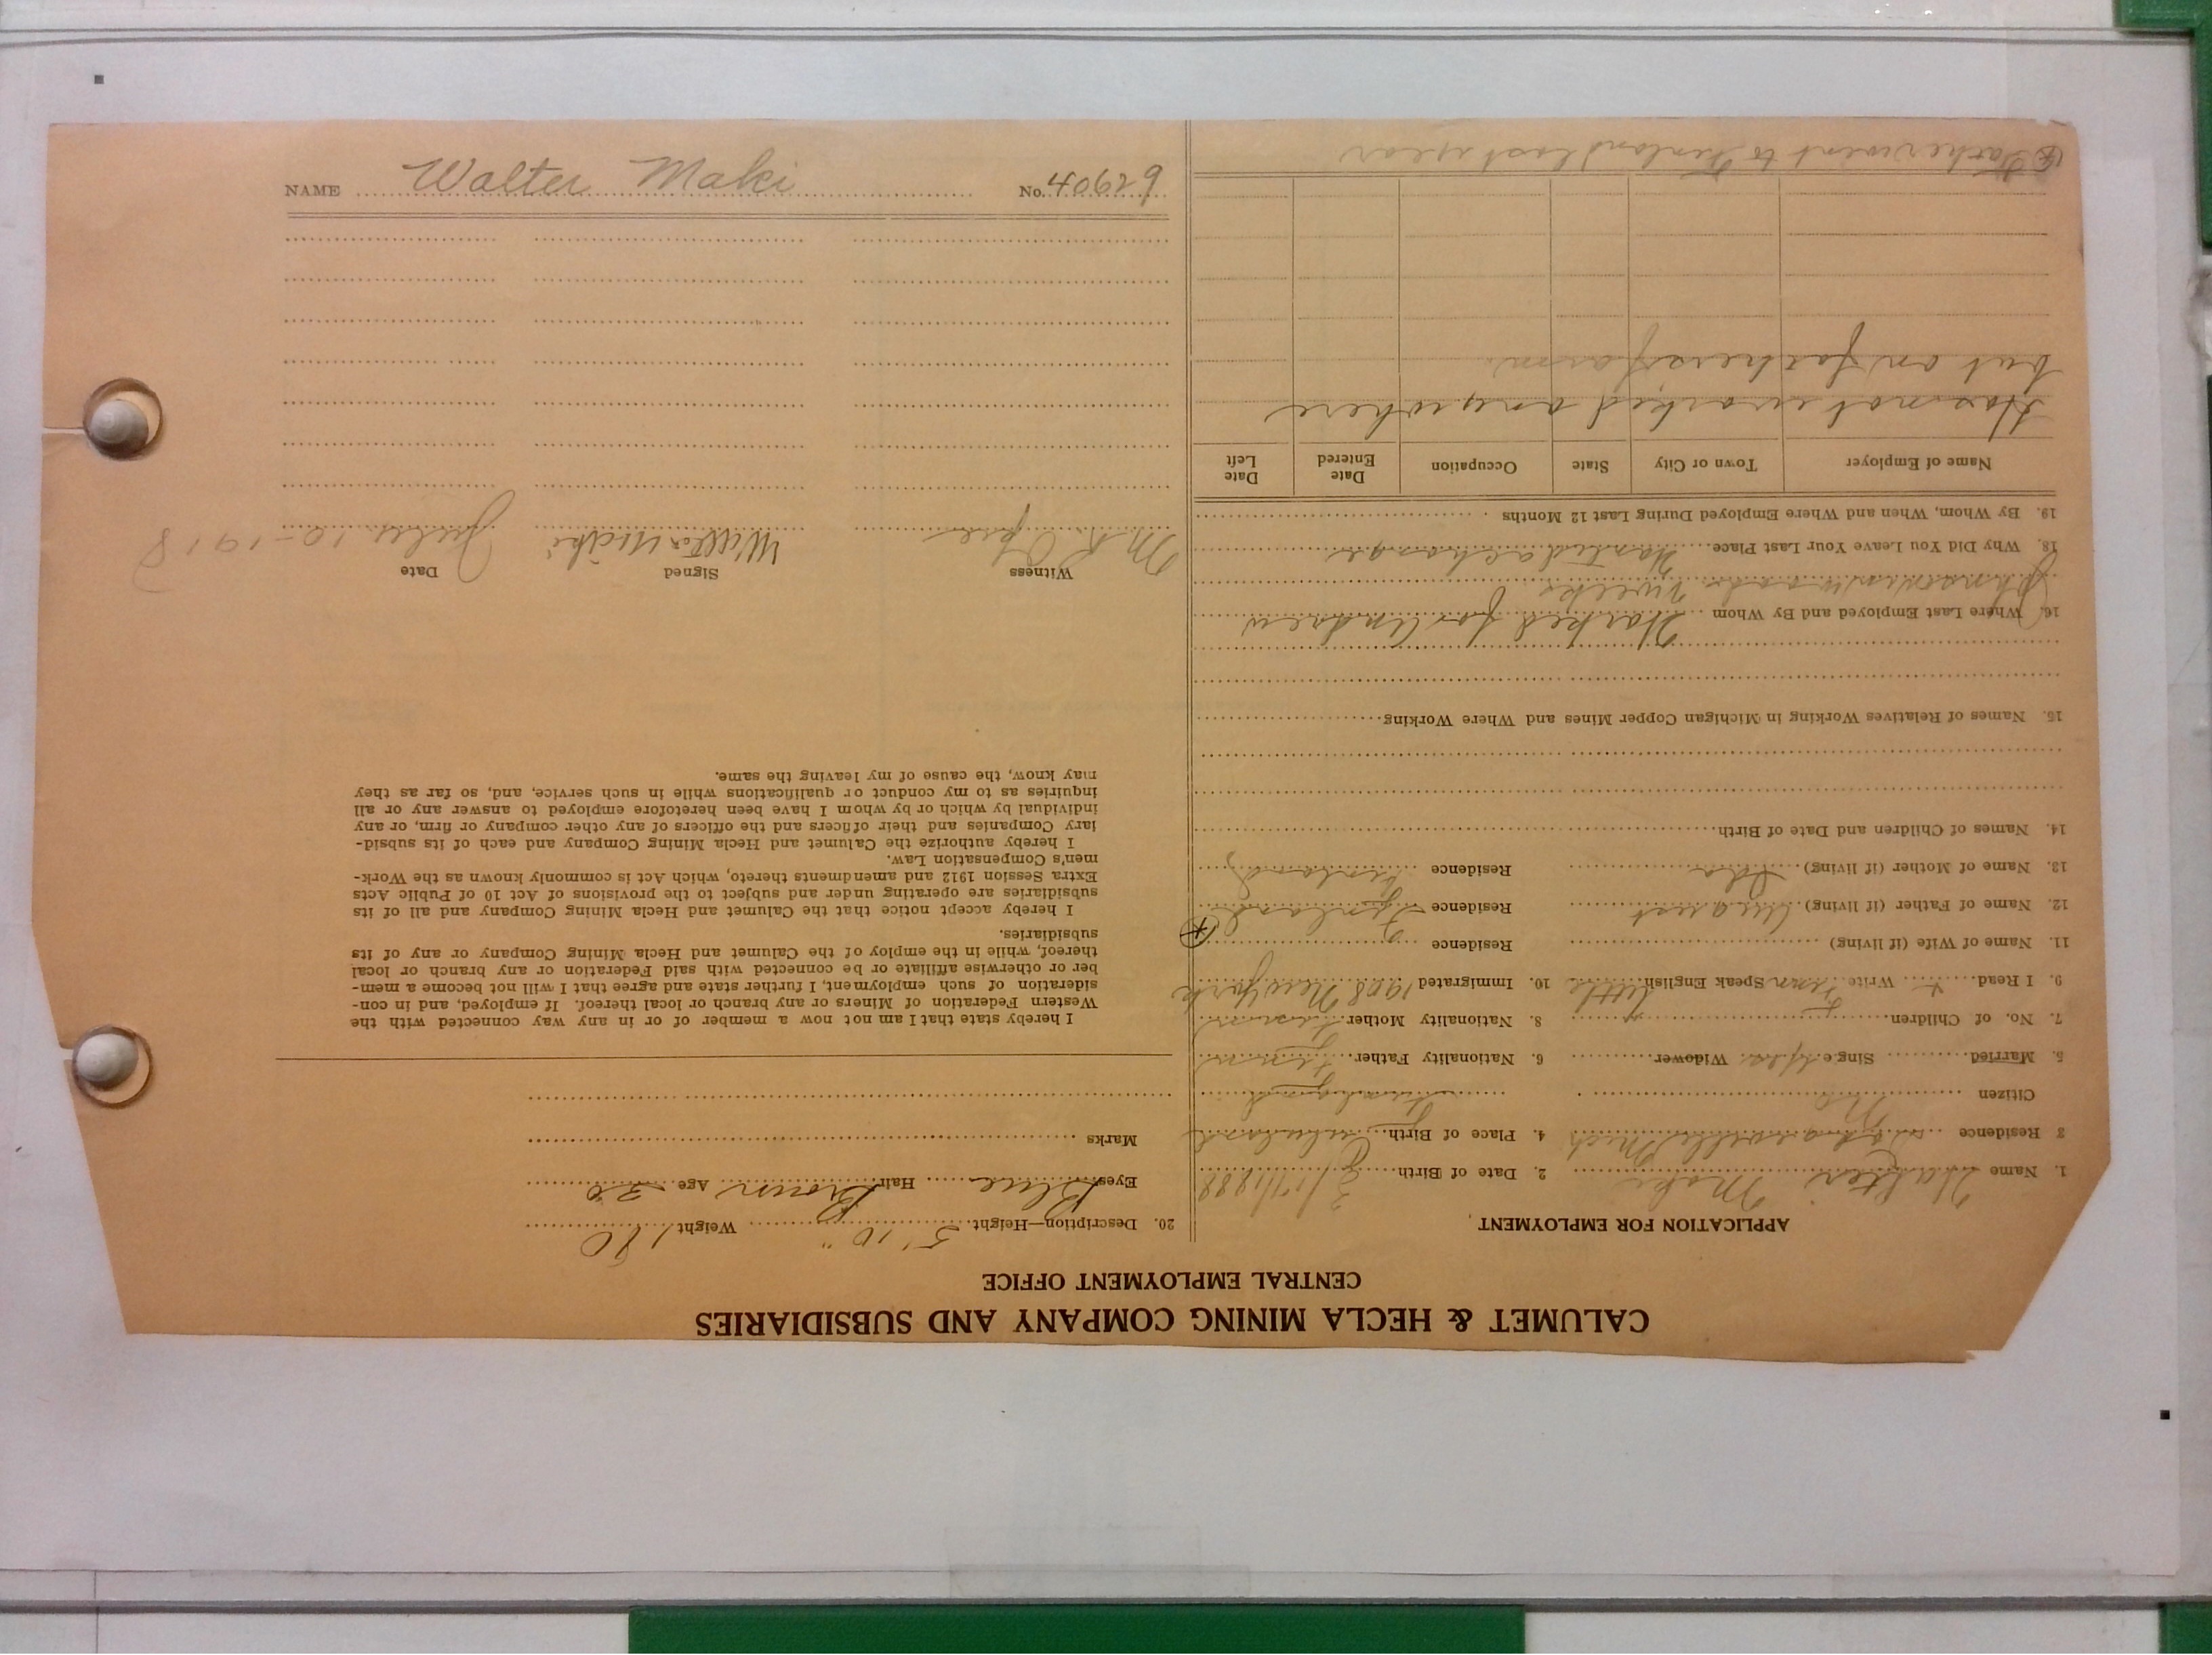 CALUMET & HECLA MINING COMPANY AND SUBSIDIARIES
CENTRAL EMPLOYMENT OFFICE
APPLICATION FOR EMPLOYMENT
1. Name Walter Maki 2. Date of Birth 3/17/1888
3 Residence Mich 4. Place of Birth
Citizen No
5. Married Single Yes Widower 6. Nationality Father Finn
7. No. of Children 8. Nationality Mother Finn
9. I Read + Write Finn Speak English little 10. Immigrated 1908 New York
11. Name of Wife (if living) Residence
12. Name of Father (if living) August Residence Finland
13. Name of Mother (if living) Ida Residence Finland
14. Names of Children and Date of Birth
15. Names of Relatives Working in Michigan Copper Mines and Where Working
16. Where Last Employed and By Whom Worked for Andrew
Johnson in woods 2 weeks
18. Why Did You Leave Your Last Place Wanted a change
19. By Whom, When and Where Employed During Last 12 Months
Name of Employer Town or City State Occupation Date Entered Date Left
Has not worked anywhere
but on fathers farm.
Father went to Finland last year
20. Description—Height 5' 10" Weight 180
Eyes Blue Hair Brown Age 30
Marks
I hereby state that I am not now a member of or in any way connected with the
Western Federation of Miners or any branch or local thereof. If employed, and in con-
sideration of such employment, I further state and agree that I will not become a mem-
ber or otherwise affiliate or be connected with said Federation or any branch or local
thereof, while in the employ of the Calumet and Hecla Mining Company or any of its
subsidiaries.
I hereby accept notice that the Calumet and Hecla Mining Company and all of its
subsidiaries are operating under and subject to the provisions of Act 10 of Public Acts
Extra Session 1912 and amendments thereto, which Act is commonly known as the Work-
men's Compensation Law.
I hereby authorize the Calumet and Hecla Mining Company and each of its subsid-
iary Companies and their officers and the officers of any other company or firm, or any
individual by which or by whom I have been heretofore employed to answer any or all
inquiries as to my conduct or qualifications while in such service, and, so far as they
may know, the cause of my leaving the same.
Witness Signed Date
Walter Maki July 10-1918
NAME Walter Maki No. 40629